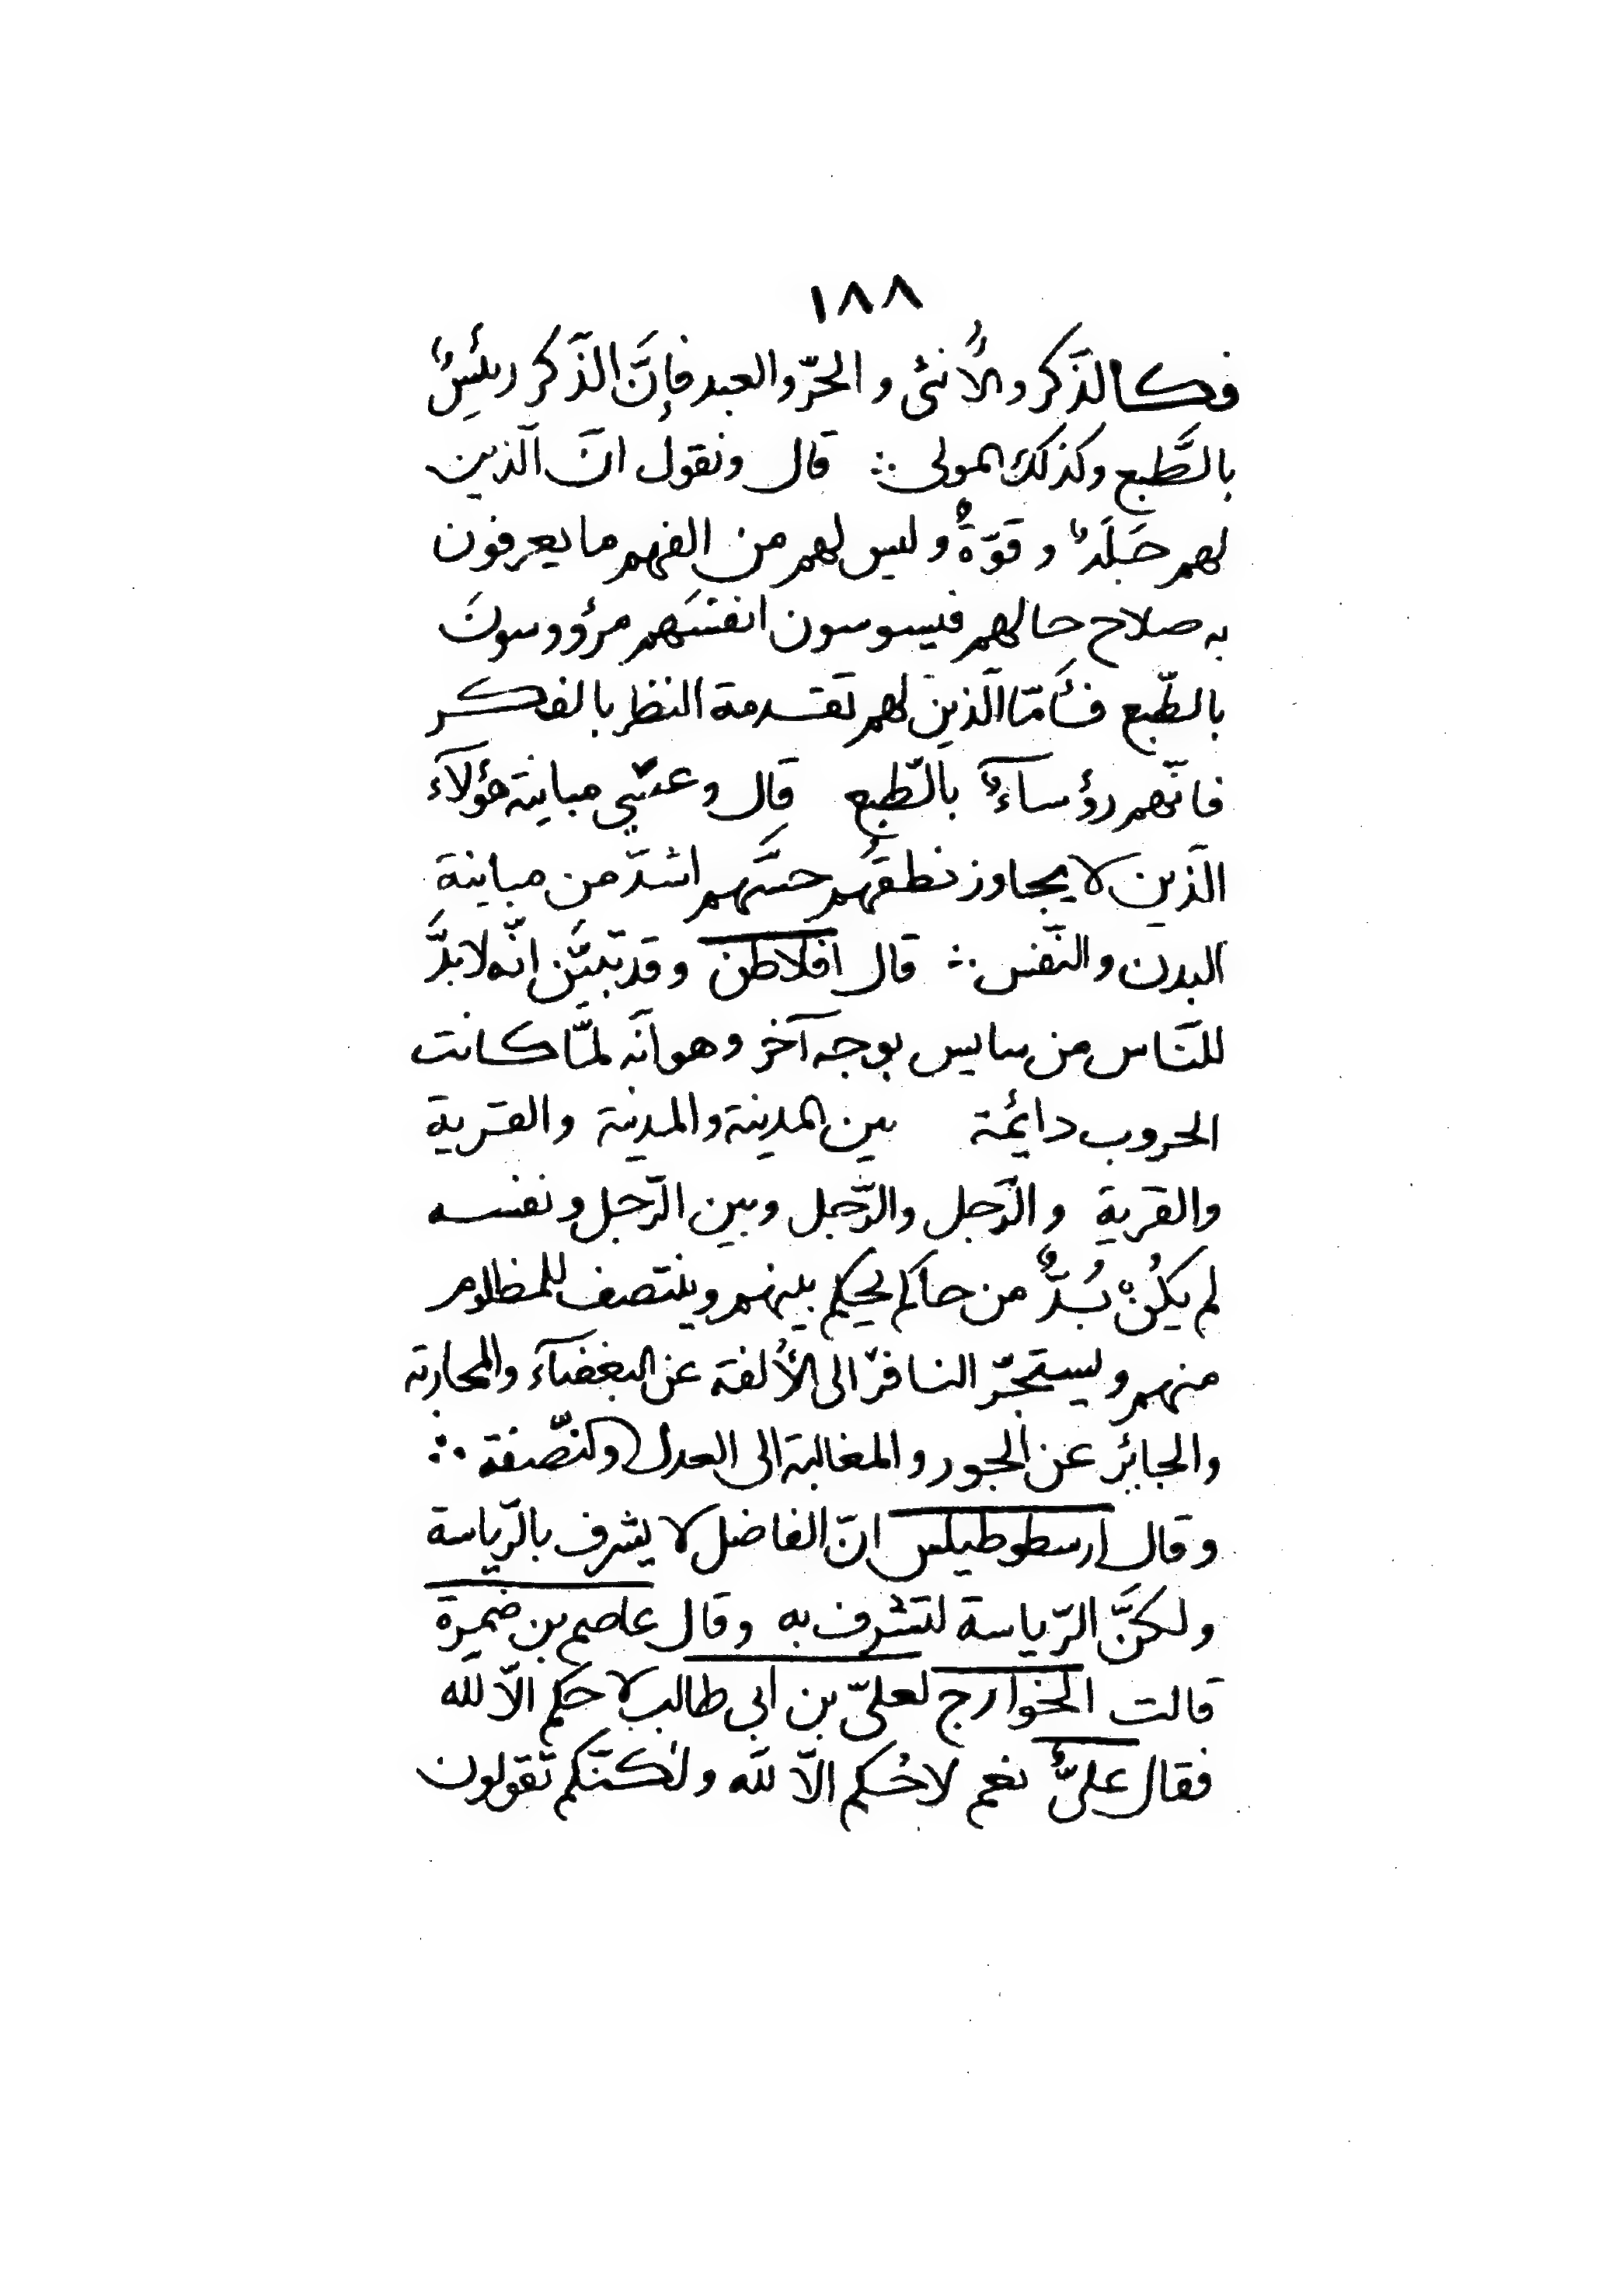 ١٨٨
فكالذَكر والأُنثى والحرّ والعبد فإِنَّ الذَكر رئيسٌ
بالطَّبع وكذلك المولى ∴ قال ونقول انّ الّذين
لهم جَلَدٌ وقوّةٌ وليس لهم من الفهم ما يعرفون
به صلاح حالهم فيسوسون انفسَهم مرؤوسونَ
بالطّبع فأَمّا الّذين لهم تقدمة النظر بالفكر
فانّهم رؤسآءٌ بالّطبع قال و مباينة هؤلآء
الّذين لا يجاوز نطقُهم حسَّهم اشدّ من مباينة
البدن والنّفس ∴ قال افلاطن وقد تبيَّن انّه لا بدَّ
للنّاس من سايس بوجه آخر وهو انّه لمّا كانت
الحروب دائمة بين المدينة والمدينة والقرية
والقرية والرّجل والرّجل وبين الرّجل ونفسه
لم يكُنْ بُدٌّ من حاكم يحكم بينهم وينتصف للمظلوم
منهم ويستجرّ النافرّ الى الأُلفة عن البغضآء والمحاربة
والجائر عن الجور والمغالبة الى العدل والنّصفة ∴
وقال ارسطوطيلس انّ الفاضل لا يشرف بالرّياسة
ولكنَّ الرّياسة لتشرف به وقال عاصم بن ضميرة
قالت الخوارج لعليّ بن ابي طالب لا حكم الّا لله
فقال عليٌّ نعم لا حُكم الّا لله ولكنّكم تقولون